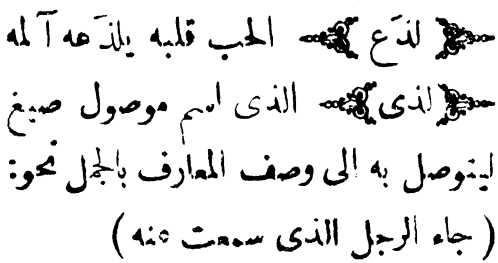 لذَع الحب قلبه يلذَعه آلمه
لذى الذى اسم موصول صيغ
ليتوصل به الى وصف المعارف بالجمل نحو:
( جاء الرجل الذى سمعت عنه )